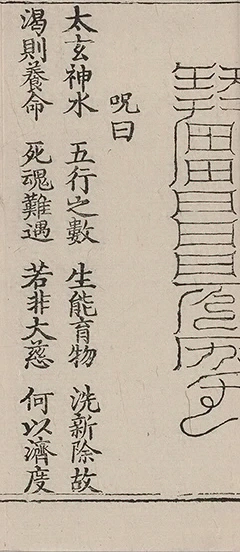 呪曰
太玄神水 五行之數 生能育物 洗新除故
渴則養命 死魂難遇 若非大慈 何以濟度